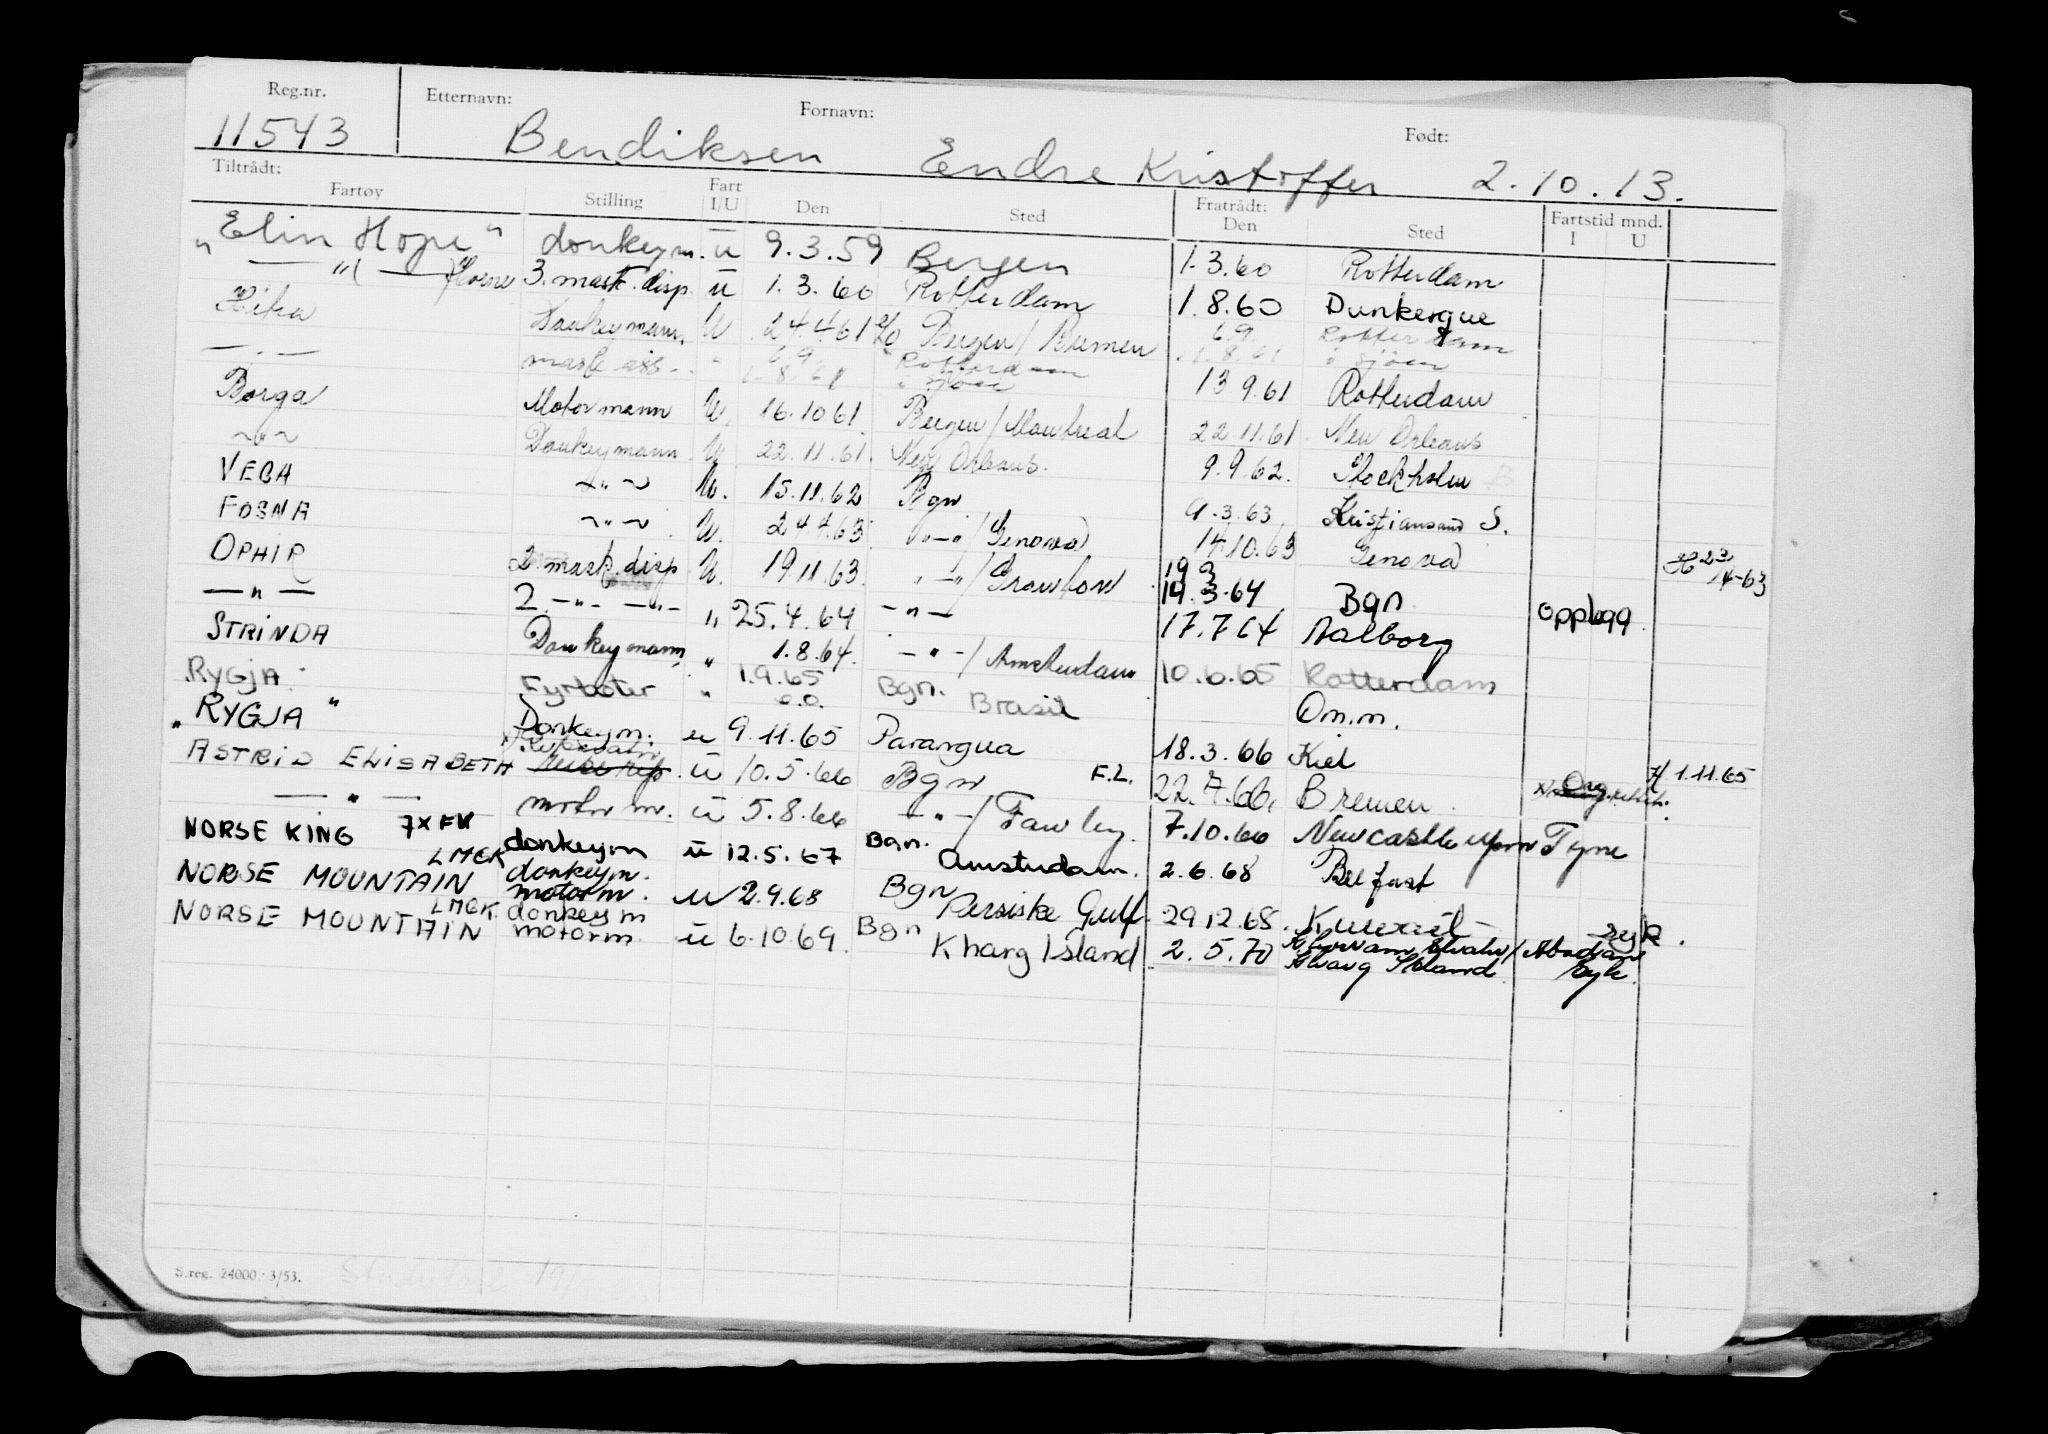 Reg.nr. Etternavn: Fornavn: Født:
11543 Bendiksen Endre Kristoffer 2.10.13.
Tiltrådt: Fratrådt: Fartstid mnd.
Fartøy Stilling Fart I/U Den Sted Den Sted I U
"Elin Hope" donkeym. u 9.3.59 Bergen 1.3.60 Rotterdam
— " ( — ) Horne 3. mask. disp. u 1.3.60 Rotterdam 1.8.60 Dunkerque
Hitra Donkeymann U 24.4.61 Bergen / Bremen 6.9. Rotterdam
— . — mask. ass. - " 6.9 Rotterdam 13 9.61 Rotterdam
1.8.61 i sjøen 1.8.61 i sjøen
Borga Motormann U. 16.10 61. Bergen / Montreal 22.11.61. New Orleans
~"~ Donkeymann U. 22.11.61. New Orleans. 9.9.62. Stockholm
VEGA ~"~ U. 15.11.62 Bgn 9.3.63 Kristiansand S.
FOSNA ~"~ U. 24.4.63. "-"/ Genova 14.10.63 Genova
OPHIR 2 mask. disp U. 19 11.63. "-"/ 19.3.64 Bgn opplagg
— " — 2. -"- -"- " 25.4.64 - " - 17.7.64 Aalborg
STRINDA Donkeymann " 1.8.64. - " - / Amsterdam 10.6.65 Rotterdam
RYGJA Fyrbøter " 1.9.65 Bgn. Brasil Om.m.
"RYGJA" Donkeym. u 9.11.65 Parangua 18.3.66 Kiel H 1.11.65
ASTRID ELISABETH u 10.5.66 Bgn F.L. 22.7.66. Bremen
— " — motorm. u 5.8.66 - " - / Fawley. 7.10.66 Newcastle upon Tyne
NORSE KING 7XFK donkeym u 12.5.67 Bgn. Amsterdam. 2.6.68 Belfast
NORSE MOUNTAIN LMCK donkeym. motorm. u 2.9.68 Bgn Persiske Gulf. 29.12.68. Kuwait - syk.
NORSE MOUNTAIN LMCK donkeym motorm. u 6.10.69. Bgn Kharg Island 2.5.70 / Abadan
Kharg Island syk.
S.reg. 24000 · 3/53.